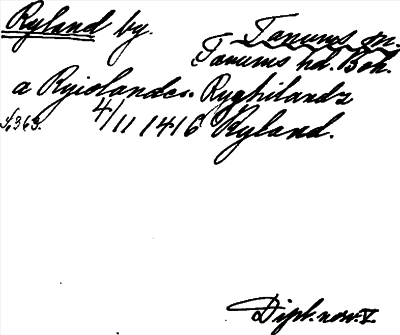 Ryland by.
Tanums sn.
Tanums hd. Boh.
a Ryiolandes. Ryghilandz
S. 363. 4/11 1416 Ryland.
Dipl. norv. V.